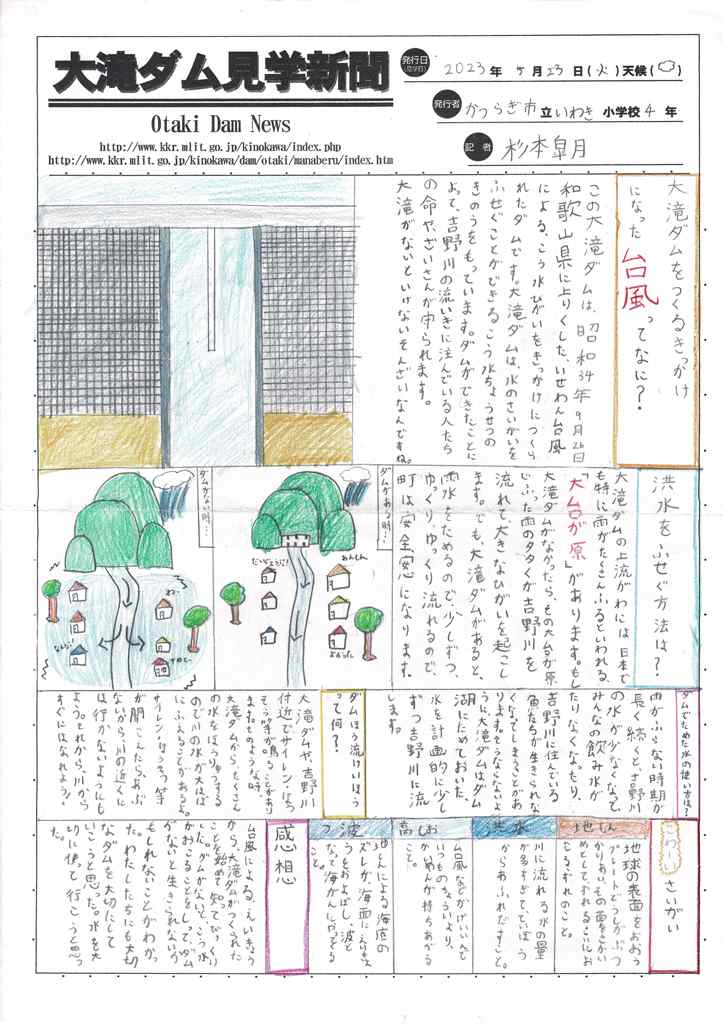 大滝ダム見学新聞
Otaki Dam News
http://www.kkr.mlit.go.jp/kinokawa/index.php
http://www.kkr.mlit.go.jp/kinokawa/dam/otaki/manaberu/index.htm
発行日
(見学日)
2023年5月23日(火)天候(
発行者 かつらぎ市立いわき小学校4年
記者 杉本皐月
大滝ダムをつくるきっかけ
になった台風ってなに?
この大滝ダムは、昭和34年9月26日
和歌山県に上りくした、いせわん台風
による、こう水ひがいをきっかけにつくら
れたダムです。大滝ダムは、水のさいがいを
ふせぐことができる、こう水ちょうせつの
きのうをもっています。ダムができたことに
よって、吉野川の流いきに注んでいる人たち
の命や、ざいさんが守られます。
大滝がないといけないそんざいなんですね。
洪水をふせぐ方法は?
大滝ダムの上流がわには、日本で
も特に雨がたくさんふるといわれる、
「大台が原」があります。もし
大滝ダムがなかったら、その大台が原
にふった雨のタタくが吉野川を
流れて、大きなひがいを起こし
ます。でも、大滝ダムがあると、
雨水をためるので、少しずつ、
ゆっくりゆっくり流れるので、
町は安全安心になります。
ダムがある時…
だいじょうぶ!
あんしん
よかった
ダムがない時…
ダムでためた水の使い方は?
雨がふらない時期が
長く続くと、吉野川
の水が少なくなって、
みんなの飲み水が
たりなくなったり、
吉野川に住んでいる
魚たちが生きられな
くなってしまうことがあ
ります。そうならないよ
うに大滝ダムはダム
湖にためておいた
水を計画的に少し
ずつ吉野川に流
します。
ダムほう流けいほう
って何?
大滝ダムや、吉野川
付近でサイレン・けい
そう等が鳴ることがあり
ます。そのような時、
大滝ダムから、たくさん
の水をほうりゅうする
ので川の水が大はば
にふえることがあるよ。
サイレン・けいそう等
が聞こえたら、あぶ
ないから川の近くに
は行かないようにし
よう。それから、川から
すぐにはなれよう!
こわーいさいがい
地しん
地球の表面をおおう
プレートどうしがぶつ
かりあいその面をさかい
めとしておれることにお
こるずれのこと。
洪水
川に流れる水の量
が多すぎて、ていぼう
からあふれだすこと。
高しお
台風などかげいいんで
いつものちょういより、
かいめんが持ちあがる
こと。
つ波
地しんによる海底の
ズレが、海面にえいきょ
うをおよぼし、波と
なって海がんにやってくる
こと。
感想
台風による、えいきょう
から、大滝ダムがつくられた
ことを始めて知ってびっくり
した。ダムがないと、こう水
がおこることをしって、ダム
がないと生きられないか
もしれないことがわかっ
た。わたしたちにも大切
なダムを大切にして
いこうと思った。水を大
切に使って行こうと思っ
た。